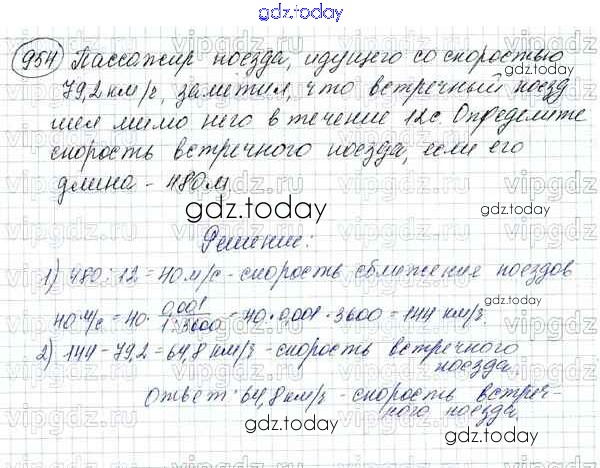 gdz.today
954 Пассажир поезда, идущего со скоростью
79,2 км/ч, заметил, что встречный поезд
шел мимо него в течение 12с. Определите
скорость встречного поезда, если его
длина - 480м
gdz.today
Решение:
1) 480:12=40м/с - скорость сближения поездов
40м/с = 40· 0,001/1:3600 = 40·0,001·3600 = 144 км/ч.
2) 144-79,2=64,8 км/ч - скорость встречного
поезда.
Ответ: 64,8 км/ч - скорость встреч-
ного поезда.
gdz.today
gdz.today
gdz.today
gdz.today
vipgdz.ru